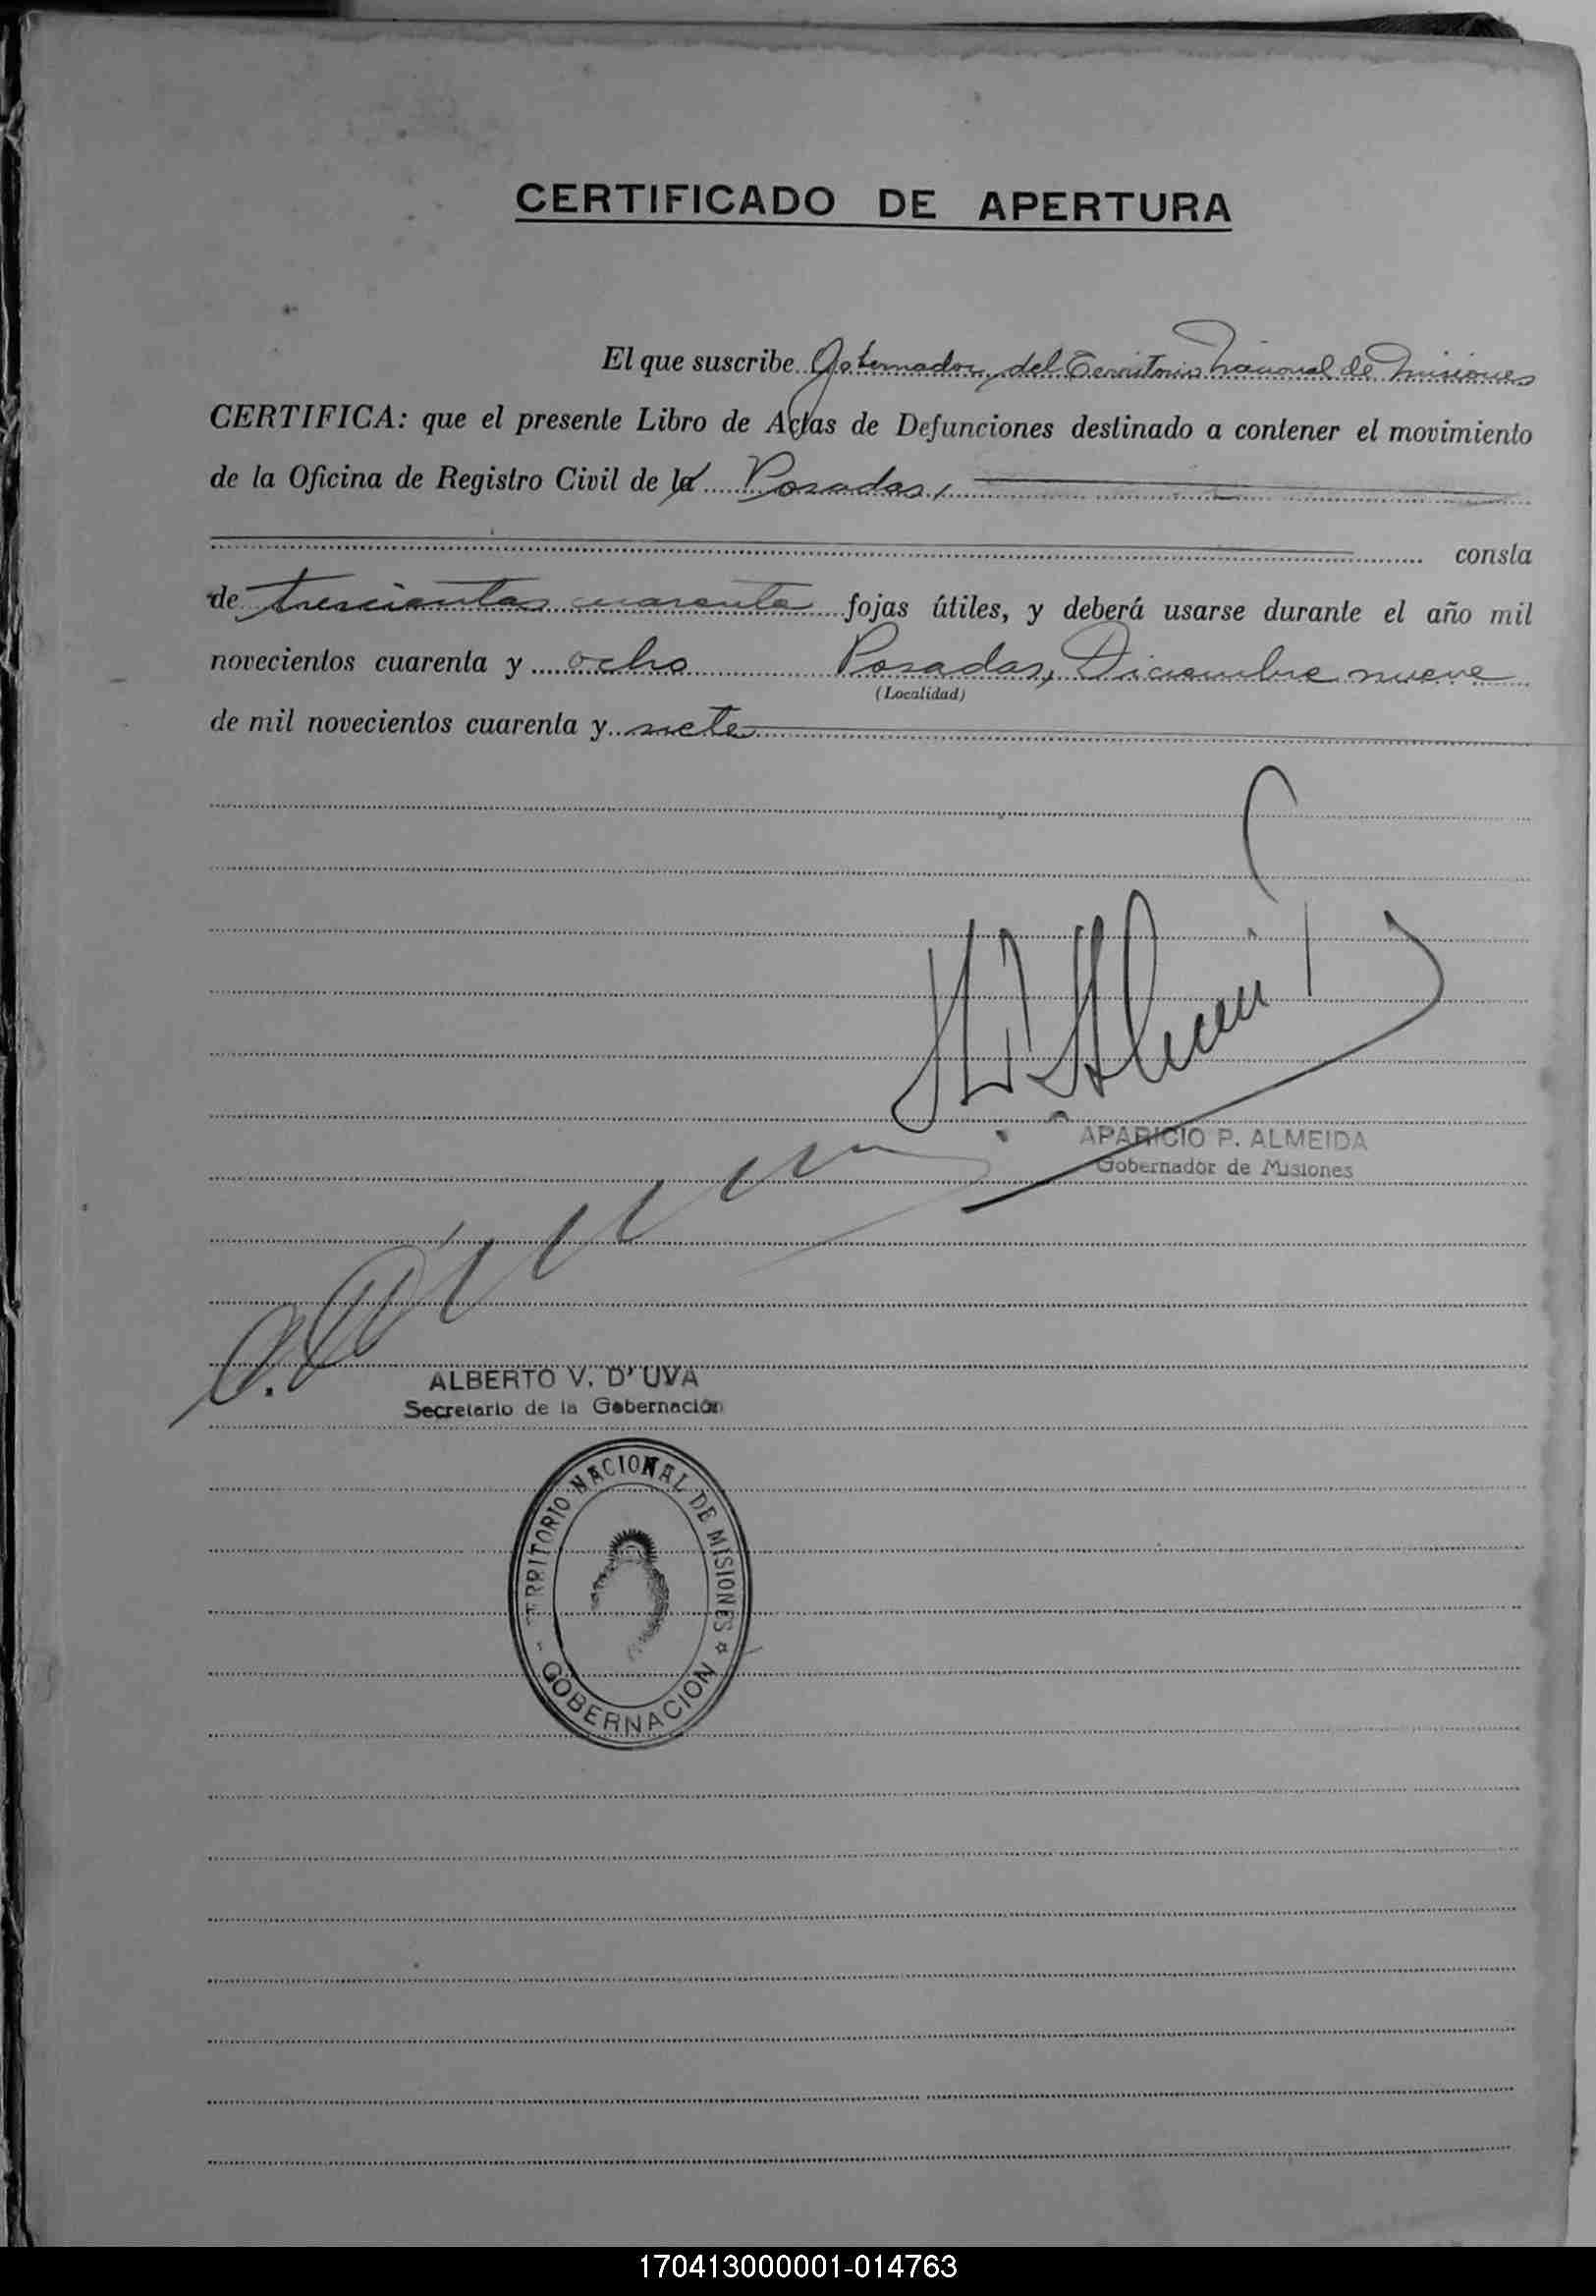 CERTIFICADO DE APERTURA
El que suscribe Gobernador del Territorio Nacional de Misiones
CERTIFICA: que el presente Libro de Actas de Defunciones destinado a contener el movimiento
de la Oficina de Registro Civil de la Posadas,
consta
de trescientas cuarenta fojas útiles, y deberá usarse durante el año mil
novecientos cuarenta y ocho Posadas, Diciembre nueve
(Localidad)
de mil novecientos cuarenta y siete
APARICIO P. ALMEIDA
Gobernador de Misiones
ALBERTO V. D'UVA
Secretario de la Gobernación
TERRITORIO NACIONAL DE MISIONES
GOBERNACION
170413000001-014763